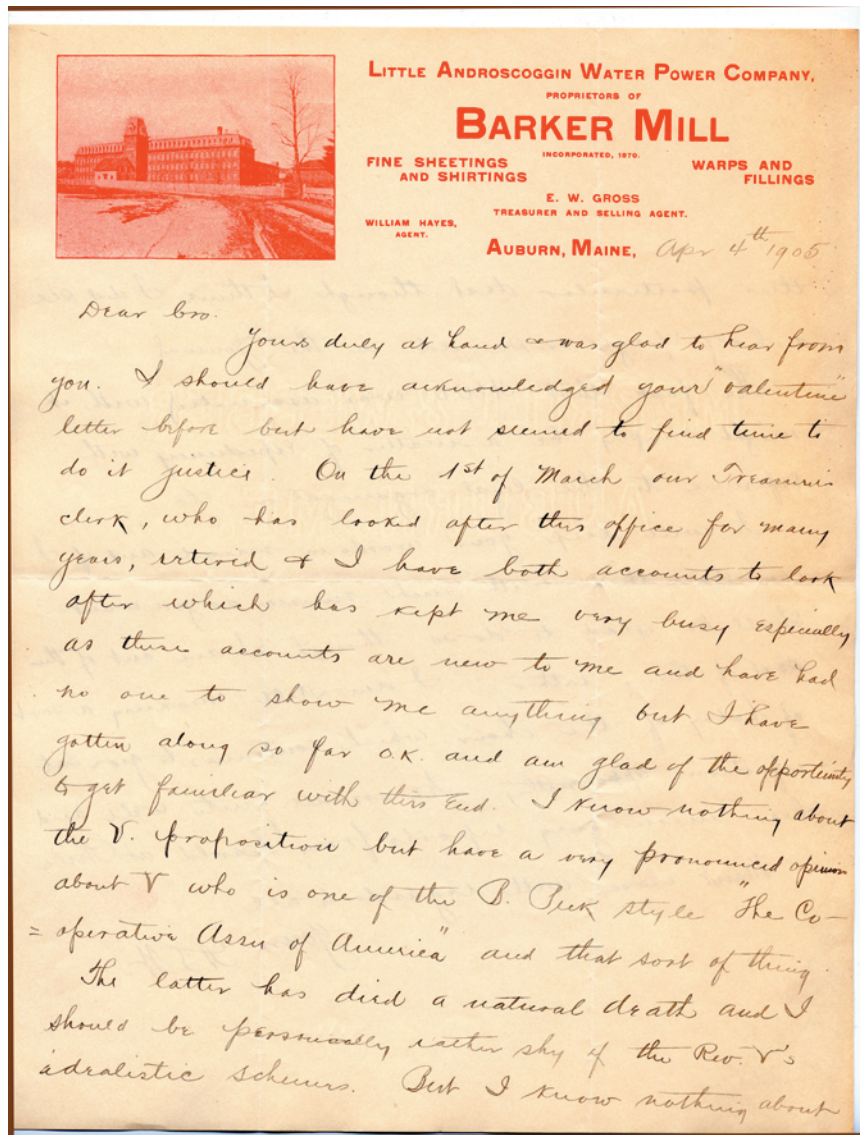 LITTLE ANDROSCOGGIN WATER POWER COMPANY,
PROPRIETORS OF
BARKER MILL
INCORPORATED, 1870.
FINE SHEETINGS
AND SHIRTINGS
WARPS AND
FILLINGS
E. W. GROSS
TREASURER AND SELLING AGENT.
WILLIAM HAYES,
AGENT.
AUBURN, MAINE, Apr 4th 1905
Dear Bro.
Yours duly at hand & was glad to hear from
you. I should have acknowledged your "valentine"
letter before but have not seemed to find time to
do it justice. On the 1st of March our Treasurers
clerk, who has looked after this office for many
years, retired & I have both accounts to look
after which has kept me very busy especially
as these accounts are new to me and have had
no one to show me anything but I have
gotten along so far O.K. and am glad of the opportunity
to get familiar with this End. I know nothing about
the V. proposition but have a very pronounced opinion
about V who is one of the B. Peck style "The Co-
=operative Assn of America" and that sort of thing.
The latter has died a natural death and I
should be personally rather shy of the Rev. V's
idealistic schemes. But I know nothing about